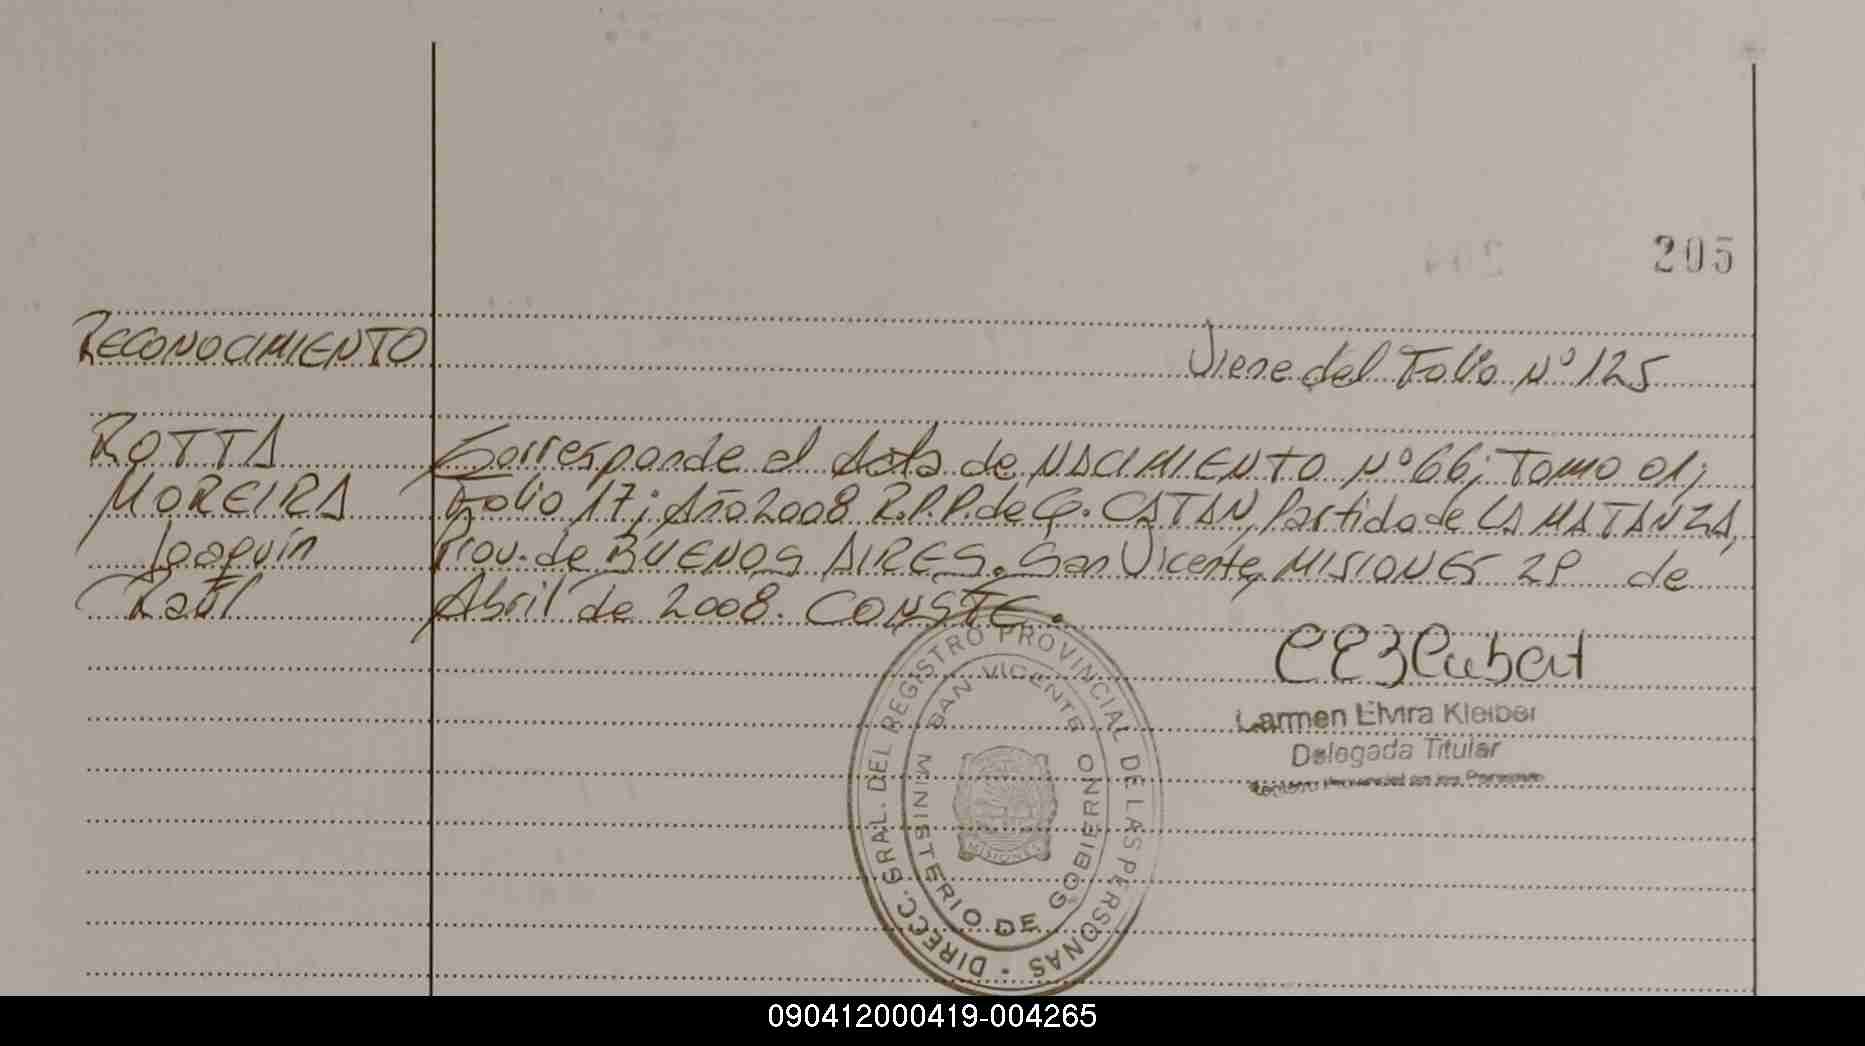 205
RECONOCIMIENTO
Viene del Folio Nº 125
ROTTA
MOREIRA
Joaquín
Raúl
Corresponde al Acta de NACIMIENTO Nº 66; Tomo 01;
Folio 17; Año 2008 R.P.P. de G. CATAN, Partido de LA MATANZA,
Prov. de BUENOS AIRES. San Vicente, MISIONES 29 de
Abril de 2008. CONSTE.
Carmen Elvira Kleiber
Delegada Titular
DIRECC. GRAL. DEL REGISTRO PROVINCIAL DE LAS PERSONAS
SAN VICENTE
MINISTERIO DE GOBIERNO
MISIONES
090412000419-004265